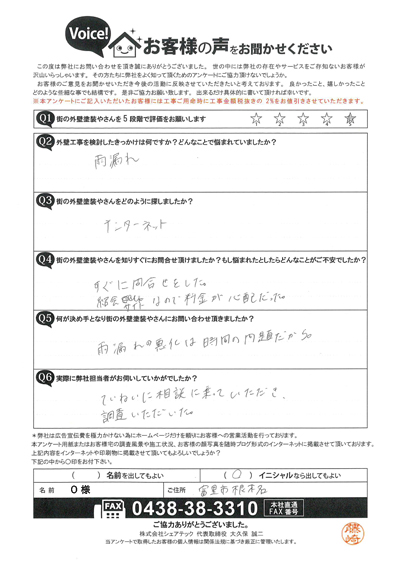 Voice!
お客様の声をお聞かせください
この度は弊社にお問い合わせを頂き誠にありがとうございました。世の中には弊社の存在やサービスをご存知ないお客様が
沢山いらっしゃいます。その方たちに弊社をよく知って頂くためのアンケートにご協力頂けないでしょうか。
お客様のご意見をお聞かせいただき今後の活動に反映させていただきたいと考えております。良かったこと、嬉しかったこと
どのような些細な事でも結構です。是非ご協力お願い致します。出来るだけ具体的に書いて頂ければ幸いです。
※本アンケートにご記入いただいたお客様には工事ご用命時に工事金額税抜きの 2%をお値引きさせていただきます。
Q1 街の外壁塗装やさんを5段階で評価をお願いします
Q2 外壁工事を検討したきっかけは何ですか?どんなことで悩まれていましたか?
雨漏れ
Q3 街の外壁塗装やさんをどのように探しましたか?
インターネット
Q4 街の外壁塗装やさんを知りすぐにお問合せ頂けましたか?もし悩まれたとしたらどんなことがご不安でしたか?
すぐに問合せをした。
紹介サイトなので料金が心配だった。
Q5 何が決め手となり街の外壁塗装やさんにお問い合わせ頂けましたか?
雨漏れの悪化は時間の問題だから
Q6 実際に弊社担当者がお伺いしていかがでしたか?
ていねいに相談に乗っていただき、
調査いただいた。
*弊社は広告宣伝費を極力かけない為にホームページだけを頼りにお客様への営業活動を行っております。
本アンケート用紙またはお客様宅の調査風景や施工状況、お客様の顔写真を随時ブログ形式のインターネットに掲載させて頂いております。
上記内容をインターネットや印刷物に掲載させて頂いてもよろしいでしょうか?
下記の中から〇印をお付け下さい。
( ) 名前を出してもよい ( 〇 ) イニシャルなら出してもよい
名 前 O様 ご住所 富里市根木名
FAX 0438-38-3310 本社直通 FAX番号
ご協力ありがとうございました。
株式会社シェアテック 代表取締役 大久保 誠二
当アンケートで取得したお客様の個人情報は関係法規に基づき厳正に管理いたします。